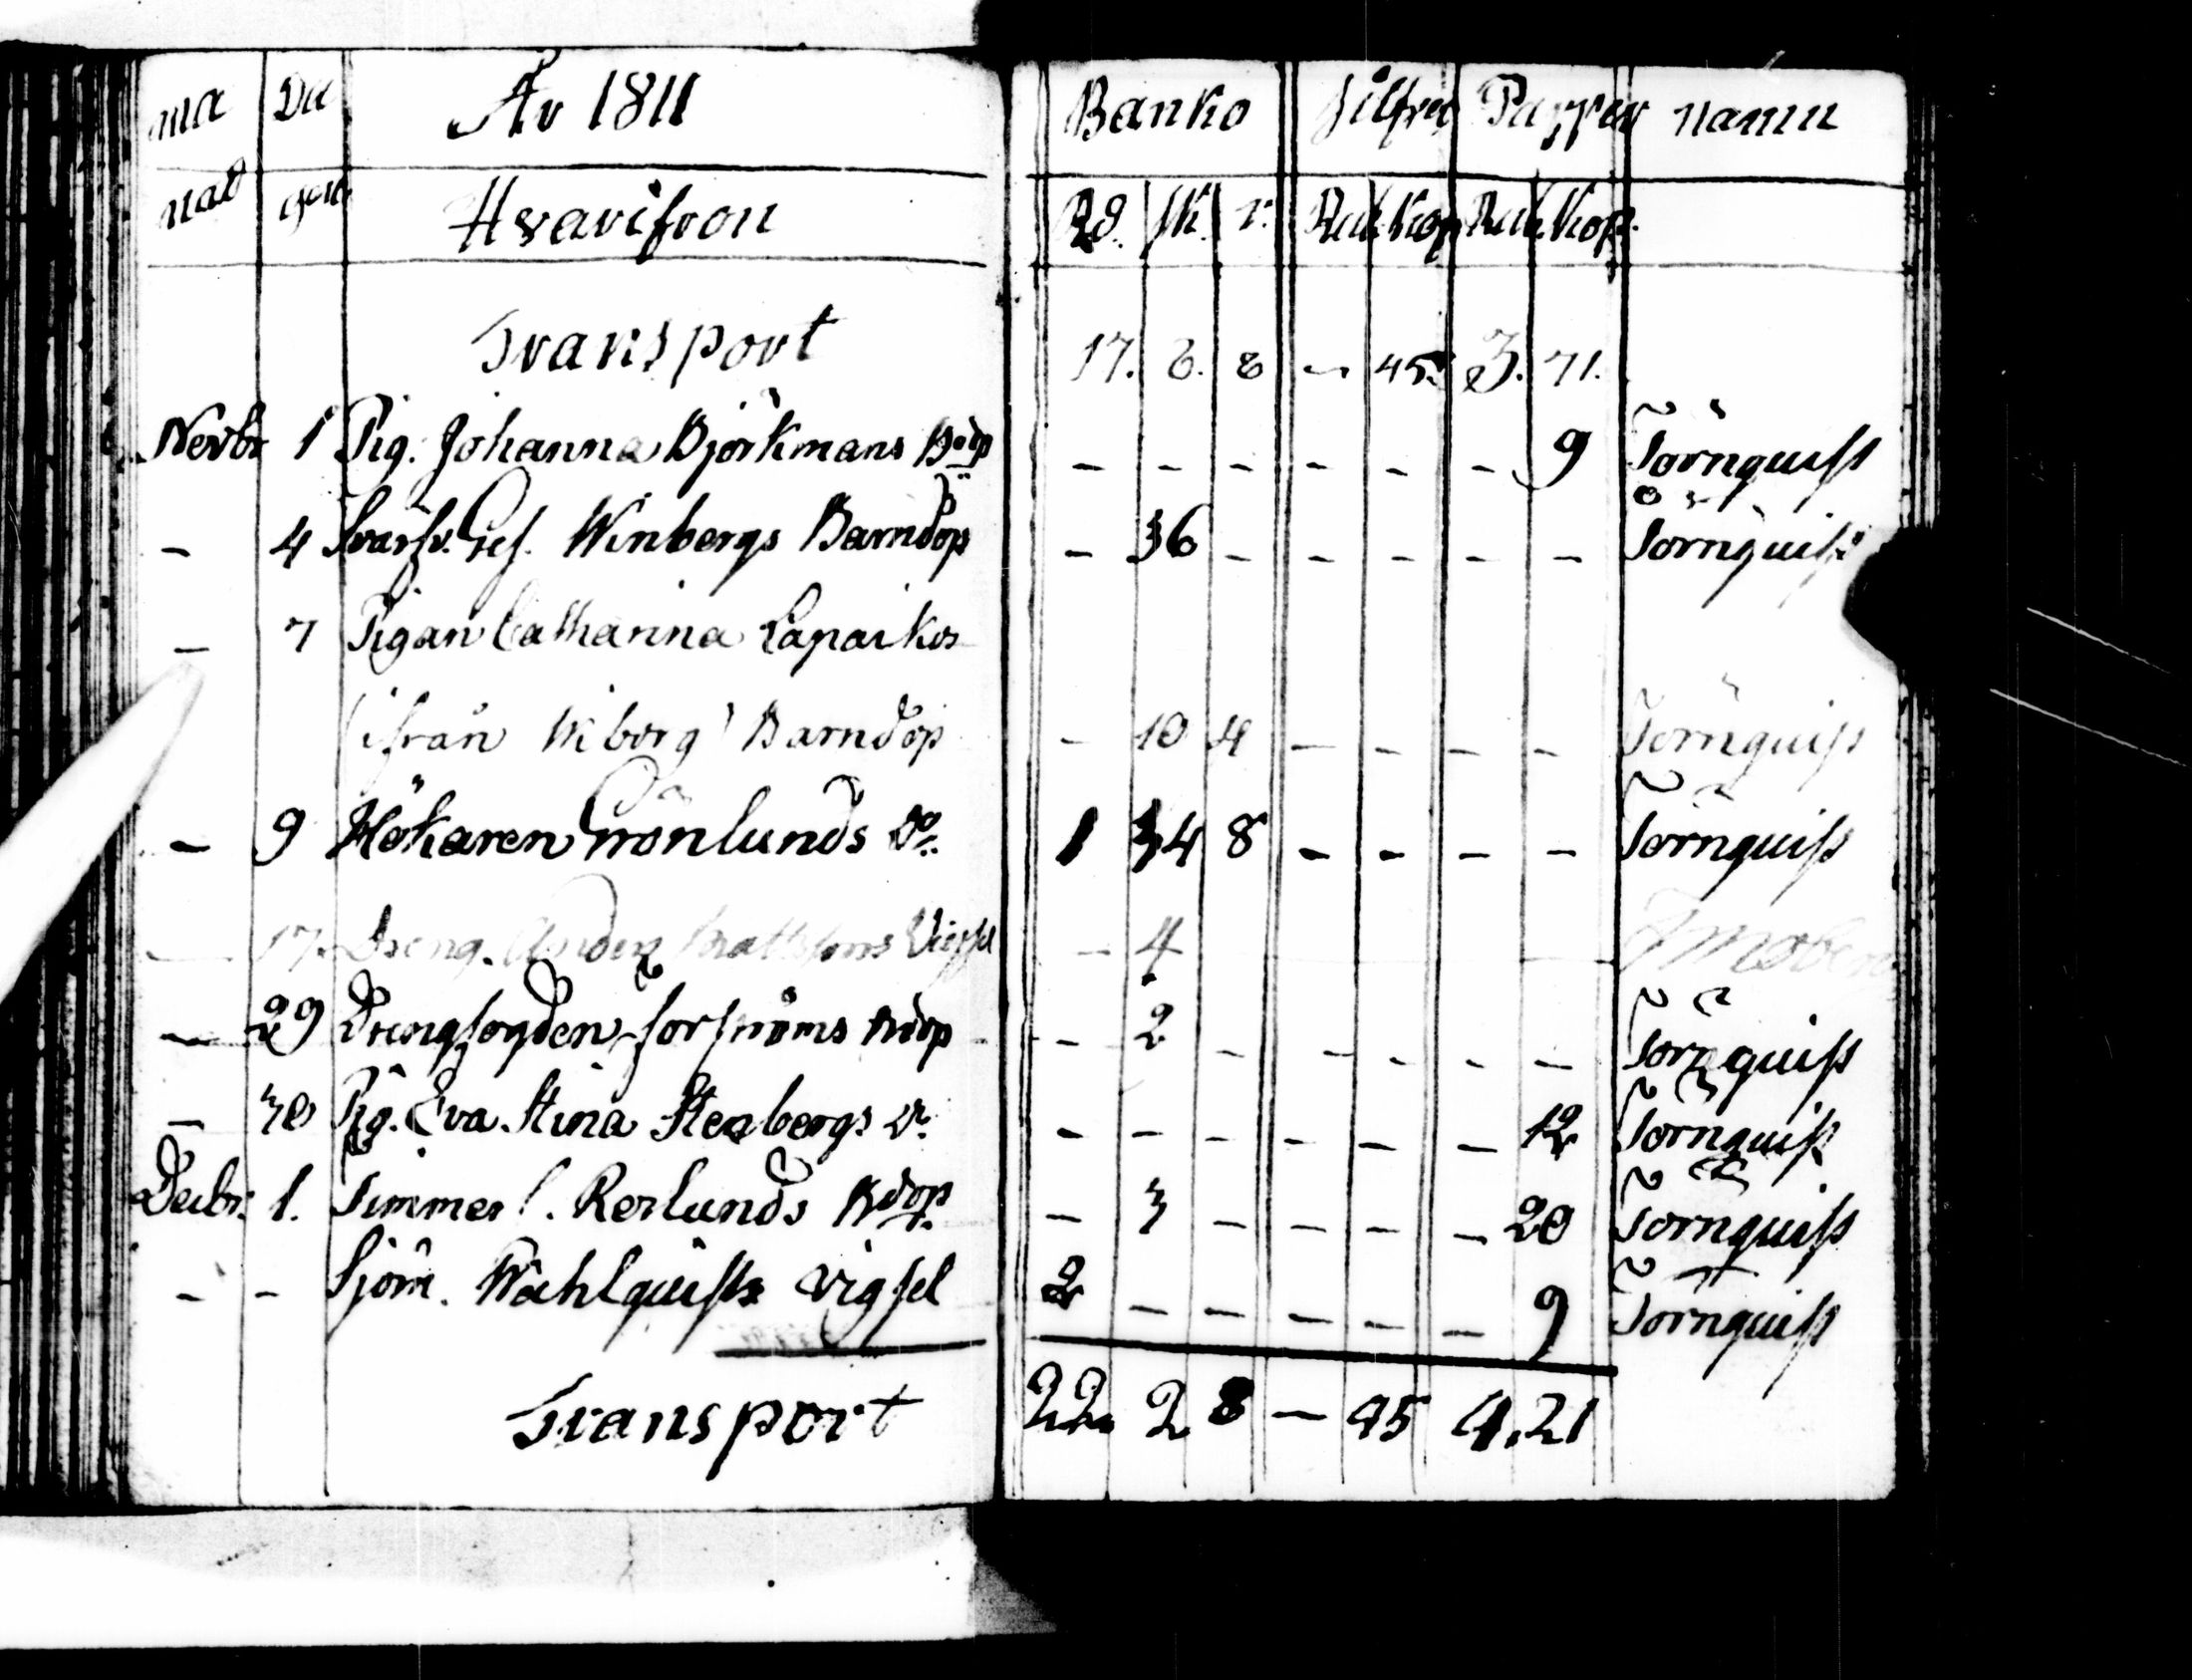 ma Da År 1811 Banko Silfver Papper namn
nad garne Hvarifron Rd. sk. r. Rub Kop Rub. Kop.
Transport 17. 8. 8 - 45. 3. 71.
Novbr 1 Pig. Johanna Björkmans Bdp - - - - - - 9 Törnquist
- 4 Svarfv. Ges. Winbergs Barndop - 36 - - - - - Törnquist
- 7 Pigan Catharina Lapaikos
(ifrån Wiborg) Barndop - 10 4 - - - - Törnquist
- 9 Hökaren Grönlunds do 1 34 8 - - - - Törnquist
- 17. Dreng. Anders Mattssons Vigsel - 4 -
- 29 Drengfogden Forströms Bdop - 2 - - - - - Törnquist
- 30 Pig. Eva Stina Stenbergs do - - - - - - 12 Törnquist
Decbr. 1. Timmer l. Rerlunds Bdop - 3 - - - - 20 Törnquist
- - Sjöm. Wahlquists Vigsel 2 - - - - - 9 Törnquist
Transport 22. 2 8 - 45 4. 21